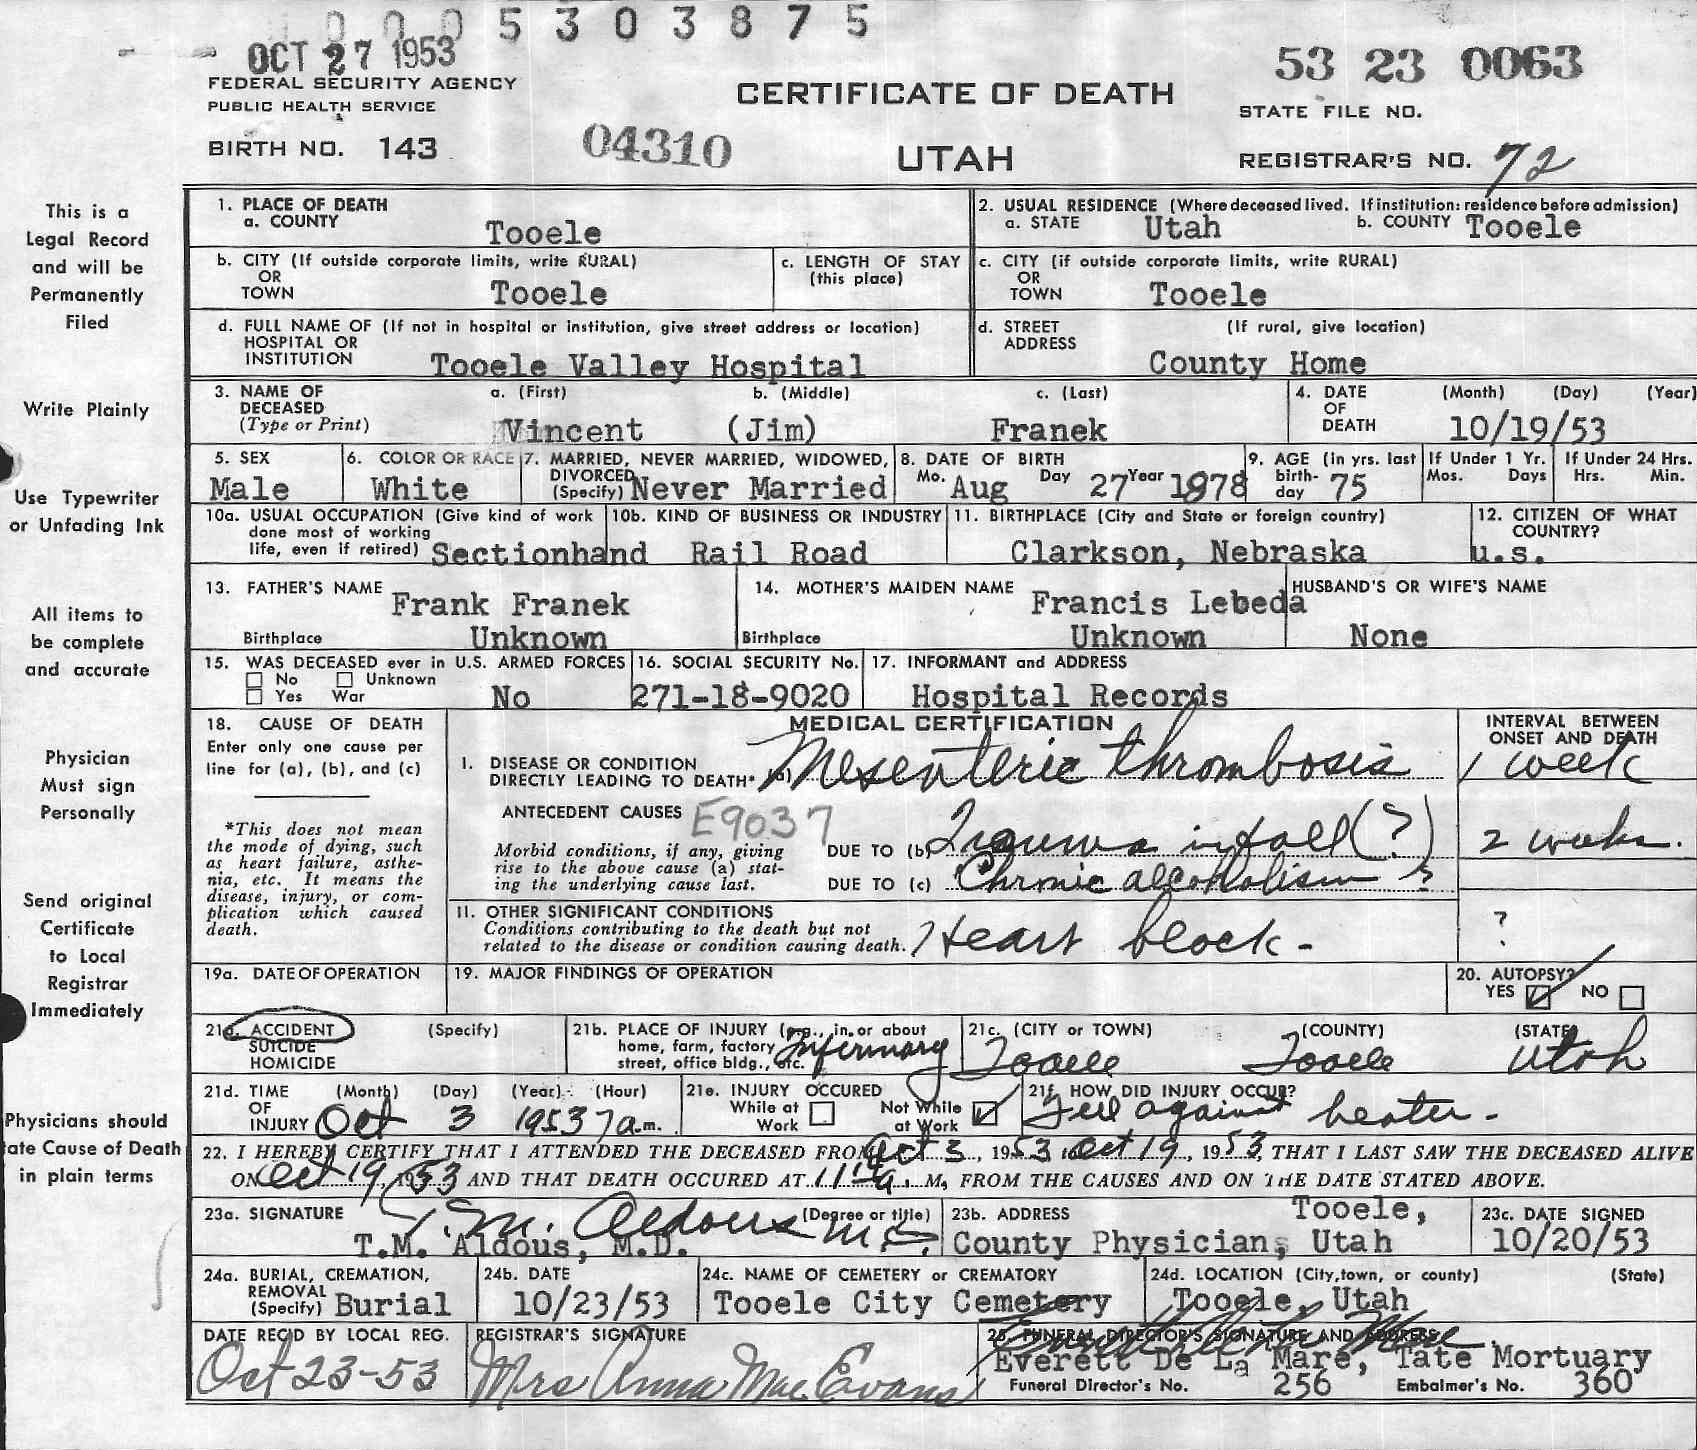 0005303875
OCT 27 1953
53 23 0063
FEDERAL SECURITY AGENCY
PUBLIC HEALTH SERVICE
CERTIFICATE OF DEATH
STATE FILE NO.
BIRTH NO. 143
04310
UTAH
REGISTRAR'S NO. 72
This is a
Legal Record
and will be
Permanently
Filed
Write Plainly
Use Typewriter
or Unfading Ink
All items to
be complete
and accurate
Physician
Must sign
Personally
Send original
Certificate
to Local
Registrar
Immediately
Physicians should
ate Cause of Death
in plain terms
1. PLACE OF DEATH
a. COUNTY Tooele
2. USUAL RESIDENCE (Where deceased lived. If institution: residence before admission)
a. STATE Utah b. COUNTY Tooele
b. CITY (If outside corporate limits, write RURAL)
OR
TOWN Tooele
c. LENGTH OF STAY
(this place)
c. CITY (if outside corporate limits, write RURAL)
OR
TOWN Tooele
d. FULL NAME OF (If not in hospital or institution, give street address or location)
HOSPITAL OR
INSTITUTION Tooele Valley Hospital
d. STREET (If rural, give location)
ADDRESS County Home
3. NAME OF a. (First) b. (Middle) c. (Last)
DECEASED
(Type or Print) Vincent (Jim) Franek
4. DATE (Month) (Day) (Year)
OF
DEATH 10/19/53
5. SEX
Male
6. COLOR OR RACE
White
7. MARRIED, NEVER MARRIED, WIDOWED,
DIVORCED
(Specify) Never Married
8. DATE OF BIRTH
Mo. Aug Day 27 Year 1878
9. AGE (in yrs. last
birth-
day 75
If Under 1 Yr.
Mos. Days
If Under 24 Hrs.
Hrs. Min.
10a. USUAL OCCUPATION (Give kind of work
done most of working
life, even if retired) Sectionhand
10b. KIND OF BUSINESS OR INDUSTRY
Rail Road
11. BIRTHPLACE (City and State or foreign country)
Clarkson, Nebraska
12. CITIZEN OF WHAT
COUNTRY?
u.s.
13. FATHER'S NAME Frank Franek
Birthplace Unknown
14. MOTHER'S MAIDEN NAME Francis Lebeda
Birthplace Unknown
HUSBAND'S OR WIFE'S NAME
None
15. WAS DECEASED ever in U.S. ARMED FORCES
No Unknown
Yes War No
16. SOCIAL SECURITY No.
271-18-9020
17. INFORMANT and ADDRESS
Hospital Records
18. CAUSE OF DEATH
Enter only one cause per
line for (a), (b), and (c)
*This does not mean
the mode of dying, such
as heart failure, asthe-
nia, etc. It means the
disease, injury, or com-
plication which caused
death.
MEDICAL CERTIFICATION
INTERVAL BETWEEN
ONSET AND DEATH
I. DISEASE OR CONDITION
DIRECTLY LEADING TO DEATH* (a) Mesenteric thrombosis 1 week
ANTECEDENT CAUSES E9037
Morbid conditions, if any, giving
rise to the above cause (a) stat-
ing the underlying cause last.
DUE TO (b) Trauma in fall (?) 2 weeks.
DUE TO (c) Chronic alcoholism ?
II. OTHER SIGNIFICANT CONDITIONS
Conditions contributing to the death but not
related to the disease or condition causing death. Heart block - ?
19a. DATE OF OPERATION
19. MAJOR FINDINGS OF OPERATION
20. AUTOPSY?
YES NO
21a. ACCIDENT (Specify)
SUICIDE
HOMICIDE
21b. PLACE OF INJURY (e.g., in or about
home, farm, factory
street, office bldg., etc. Infirmary
21c. (CITY or TOWN) (COUNTY) (STATE)
Tooele Tooele Utah
21d. TIME (Month) (Day) (Year) (Hour)
OF
INJURY Oct 3 1953 7 a.m.
21e. INJURY OCCURED
While at Work Not While at Work
21f. HOW DID INJURY OCCUR?
Fell against heater -
22. I HEREBY CERTIFY THAT I ATTENDED THE DECEASED FROM Oct 3, 1953, to Oct 19, 1953, THAT I LAST SAW THE DECEASED ALIVE
ON Oct 19, 1953 AND THAT DEATH OCCURED AT 11 a. M, FROM THE CAUSES AND ON THE DATE STATED ABOVE.
23a. SIGNATURE T. M. Aldous (Degree or title) M.D.
T.M. Aldous, M.D.
23b. ADDRESS Tooele,
County Physician, Utah
23c. DATE SIGNED
10/20/53
24a. BURIAL, CREMATION,
REMOVAL
(Specify) Burial
24b. DATE
10/23/53
24c. NAME OF CEMETERY or CREMATORY
Tooele City Cemetery
24d. LOCATION (City, town, or county) (State)
Tooele, Utah
DATE REC'D BY LOCAL REG.
Oct 23-53
REGISTRAR'S SIGNATURE
Mrs Anna Mae Evans
25. FUNERAL DIRECTOR'S SIGNATURE AND ADDRESS
Everett De La Mare
Everett De La Mare, Tate Mortuary
Funeral Director's No. 256 Embalmer's No. 360